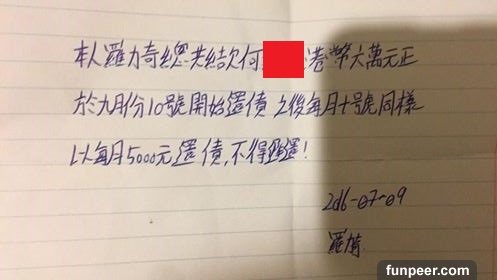 本人羅力奇總共結欠何 港幣六萬元正
於九月份10號開始還債 之後每月十號同樣
以每月5000元還債,不得 還!
2016-07-09
羅
funpeer.com